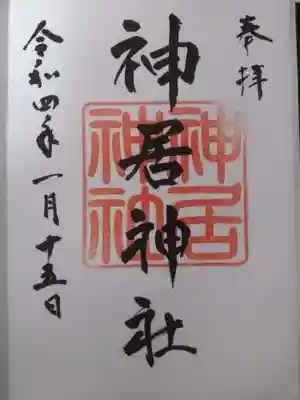 奉拝
神居神社
神居
神社
令和四年一月十五日